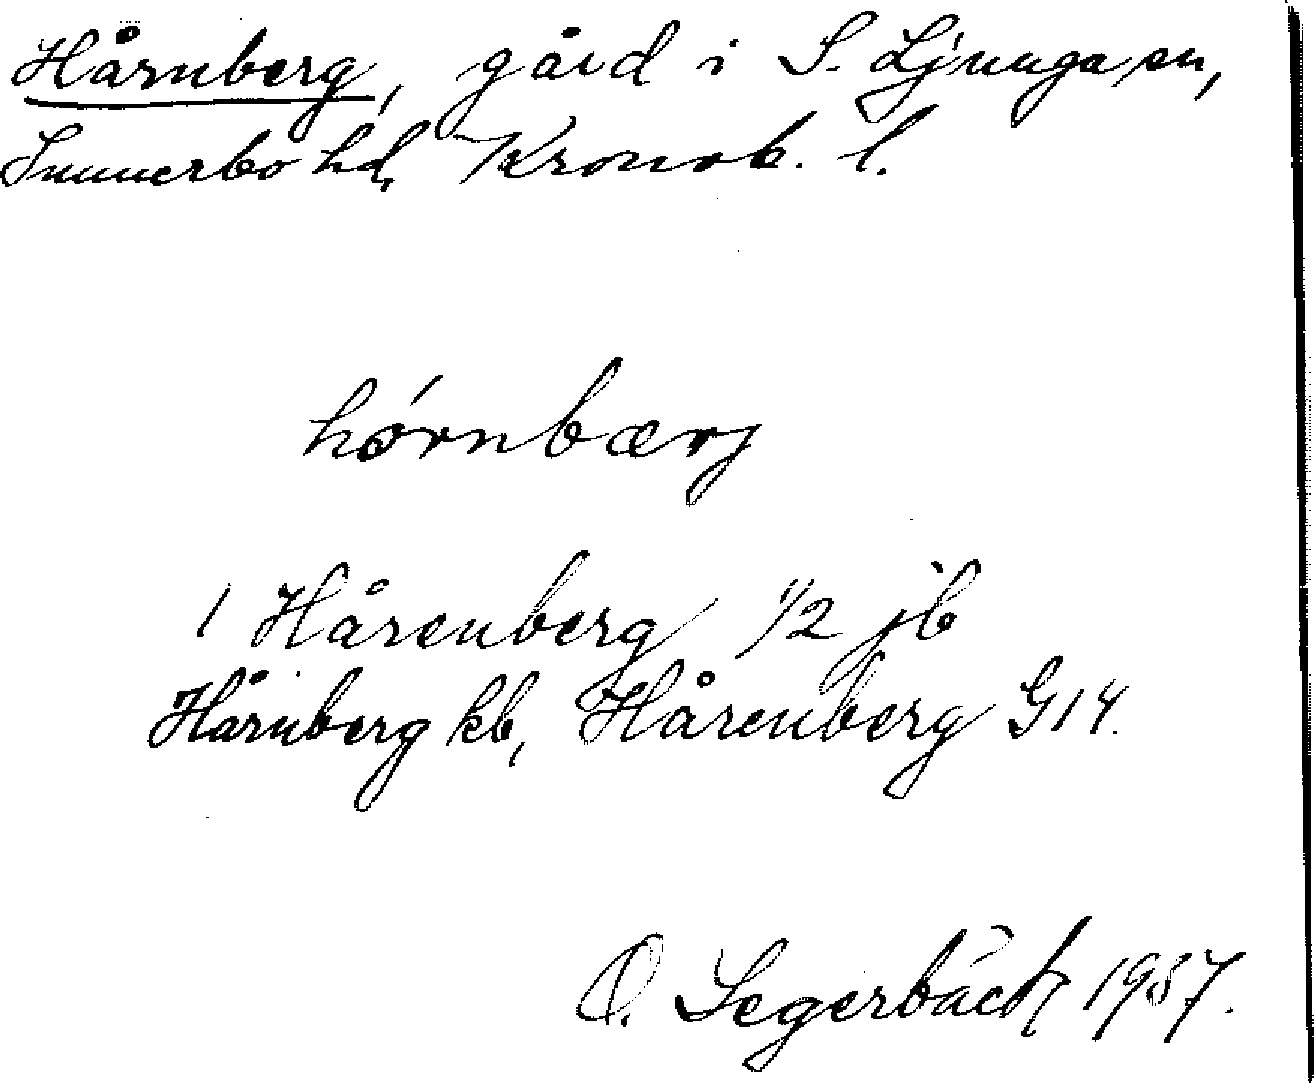 Hårnberg, gård i S. Ljunga sn,
Sunnerbo hd, Kronob. l.
hórnbærj
1 Hårenberg 1/2 jb
Hårnberg kb, Hårenberg G14.
O. Segerbäck 1957.